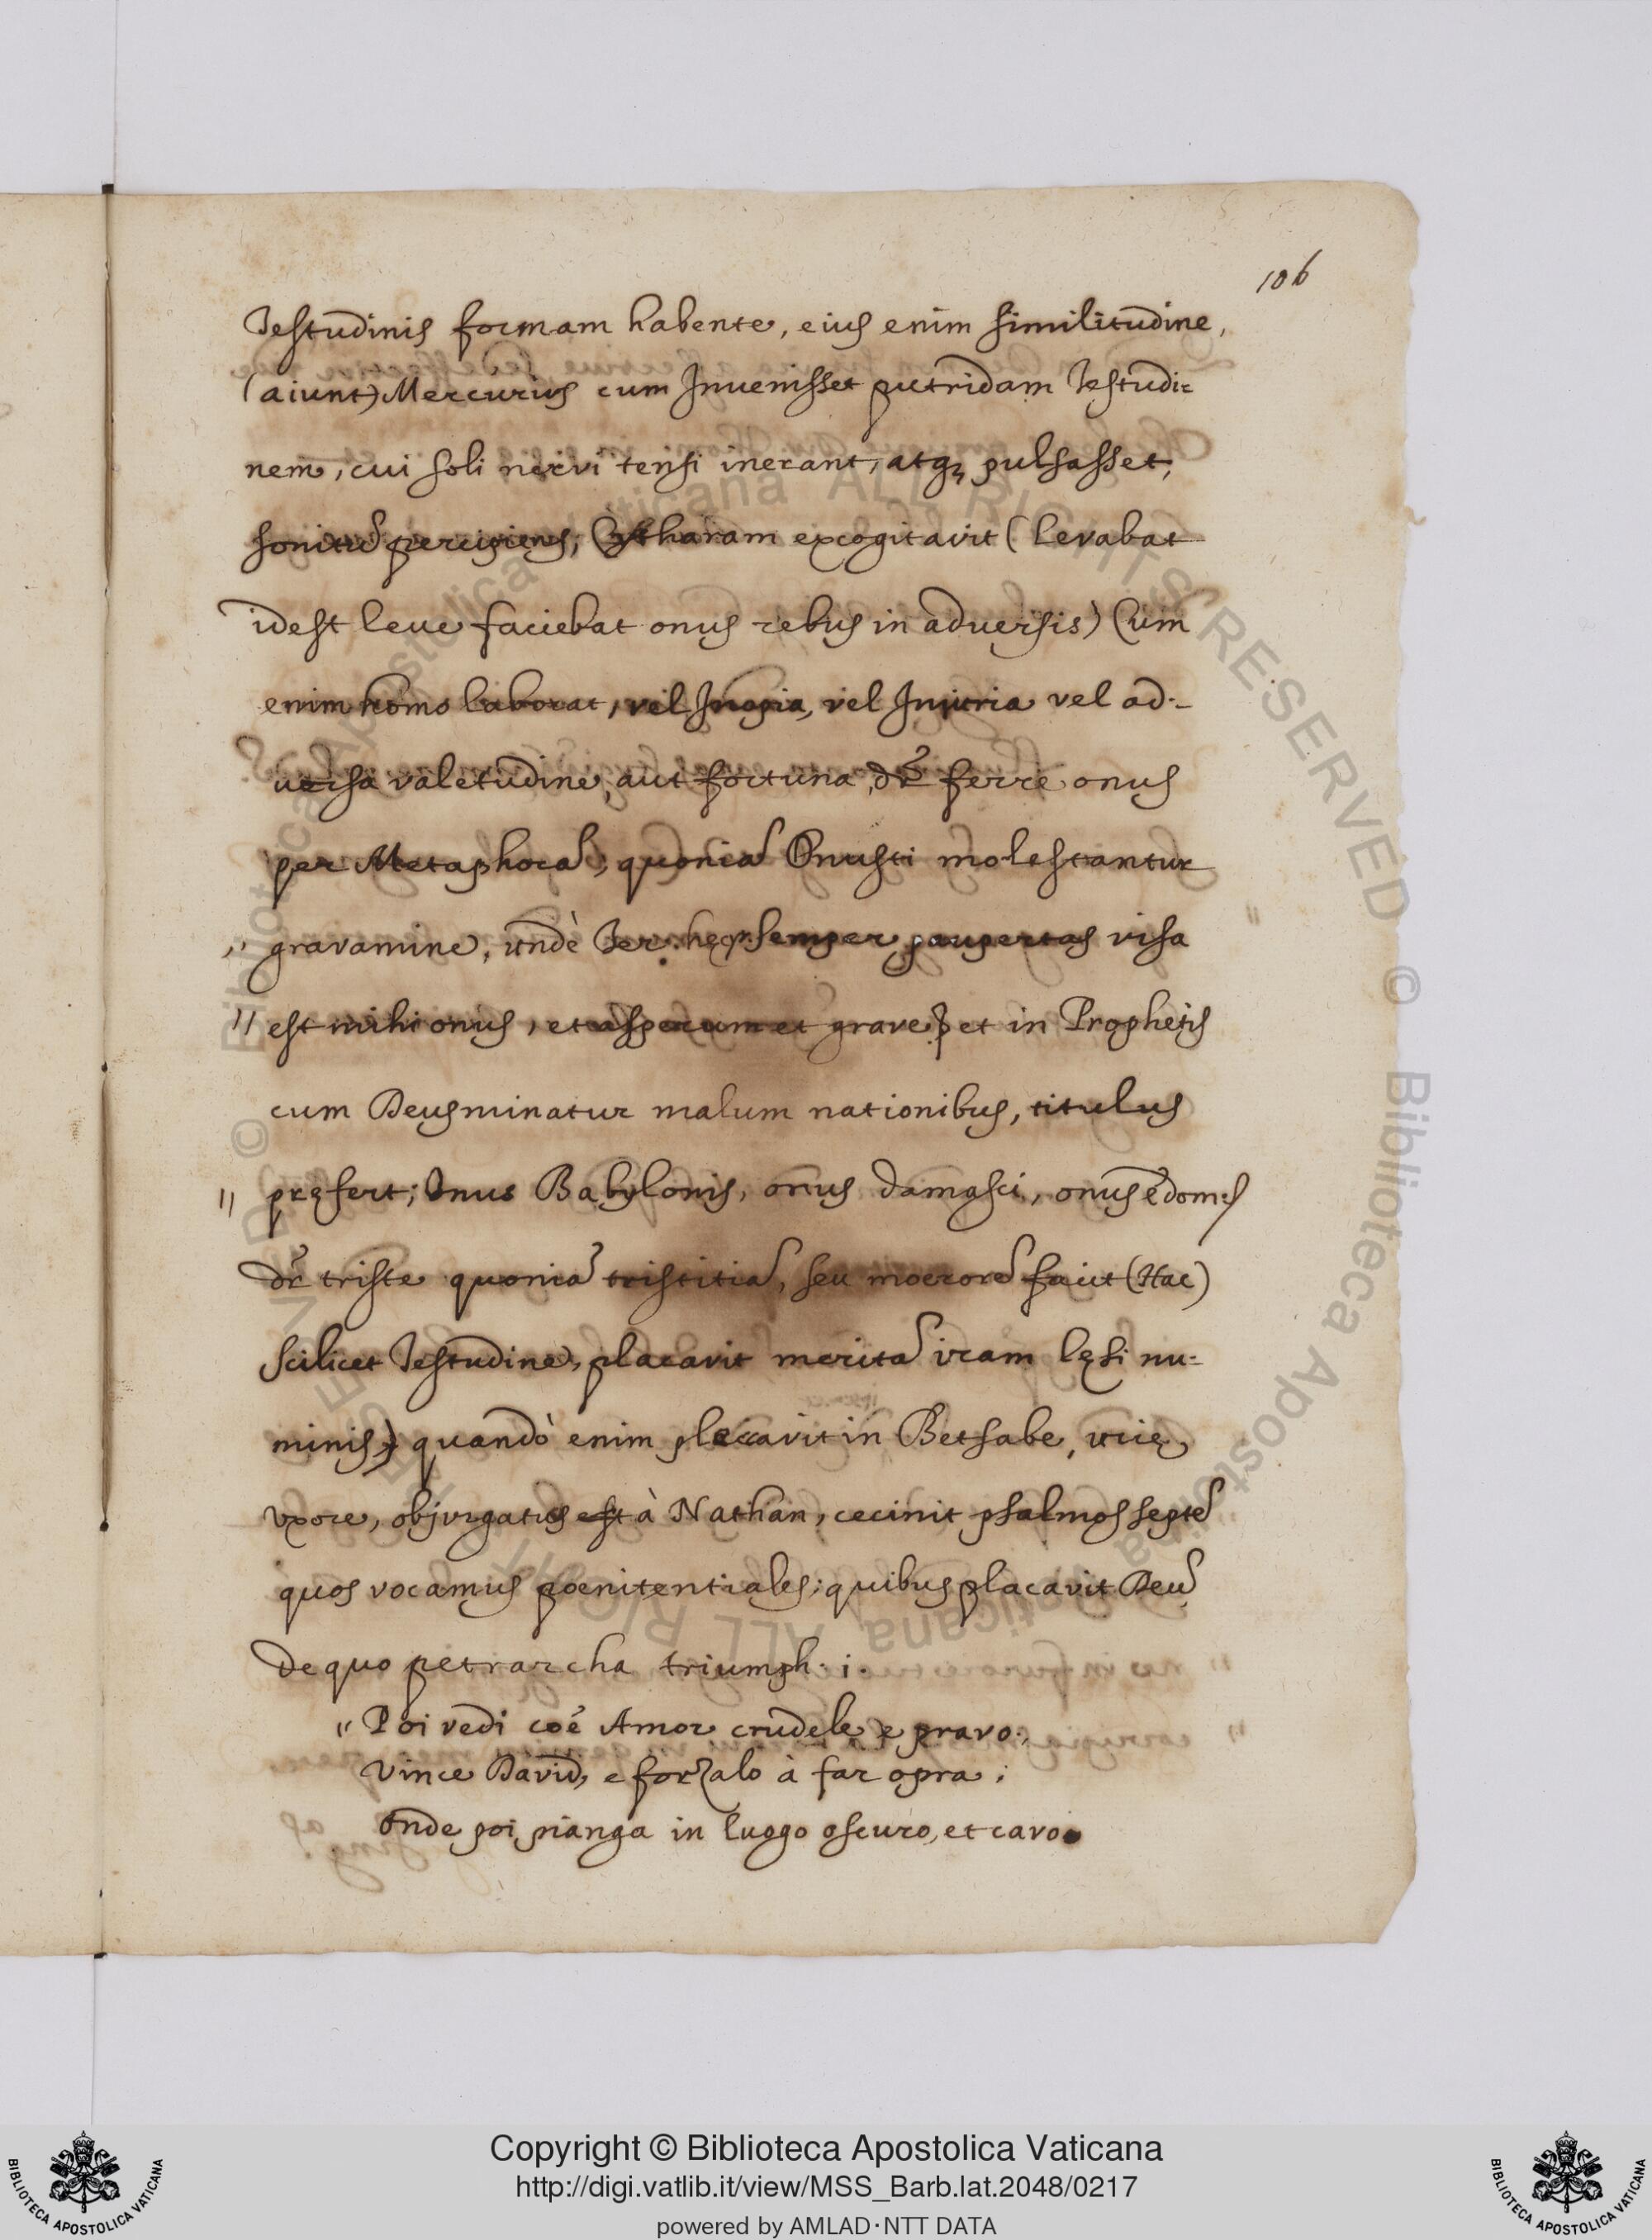 106
Testudinis formam habente, eius enim similitudine,
(aiunt) Mercurius cum Invenisset putridam Testudi=
nem, cui soli nervi tensi inerant, atq; pulsasset,
sonitũ percipiens, Cytharam excogitavit (levabat
idest leve faciebat onus rebus in adversis) Cum
enim homo laborat, vel Inopia, vel Iniuria vel ad=
versa valetudine, aut fortuna, dr̃ ferre onus
per Metaphorã, quoniã Onusti molestantur
" gravamine, undè Ter. semper paupertas visa
" est mihi onus, et asperum et grave; et in Prophetis
cum Deus minatur malum nationibus, titulus
" pręfert; Onus Babylonis, onus damasci, onus edom;
dr̃ triste quoniã tristitiã, seu moerorẽ facit (Hac)
scilicet Testudine, placavit meritã iram lęsi nu=
minis) quandò enim peccavit in Betsabe, urię
uxore, objurgatus est à Nathan, cecinit psalmos septẽ
quos vocamus poenitentiales; quibus placavit Deũ
de quo petrarcha triumph. i.
" Poi vedi coẽ Amor crudele, e pravo.,
Vince David, e forzalo à far opra;
Onde poi pianga in luogo oscuro, et cavo.
© Biblioteca Apostolica Vaticana ALL RIGHTS RESERVED
© Biblioteca Apostolica Vaticana ALL RIGHTS RESERVED
Copyright © Biblioteca Apostolica Vaticana
http://digi.vatlib.it/view/MSS_Barb.lat.2048/0217
powered by AMLAD·NTT DATA
BIBLIOTECA APOSTOLICA VATICANA
BIBLIOTECA APOSTOLICA VATICANA